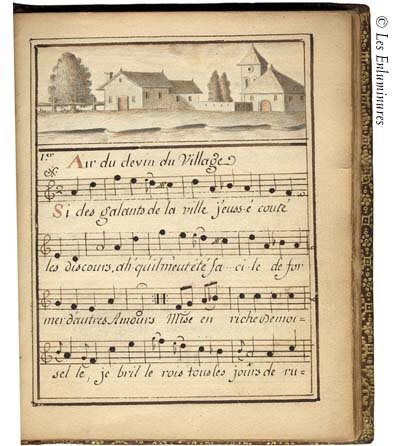 1er
Air du devin du Village
Si des galants de la ville j'euss-é couté
les discours, ah qu'il m'eut été fa-ci-le de for
mer d'autres Amours Mise en riche Demoi=
sel le, je bril le rois tous les jours de ru-
© Les Enluminures